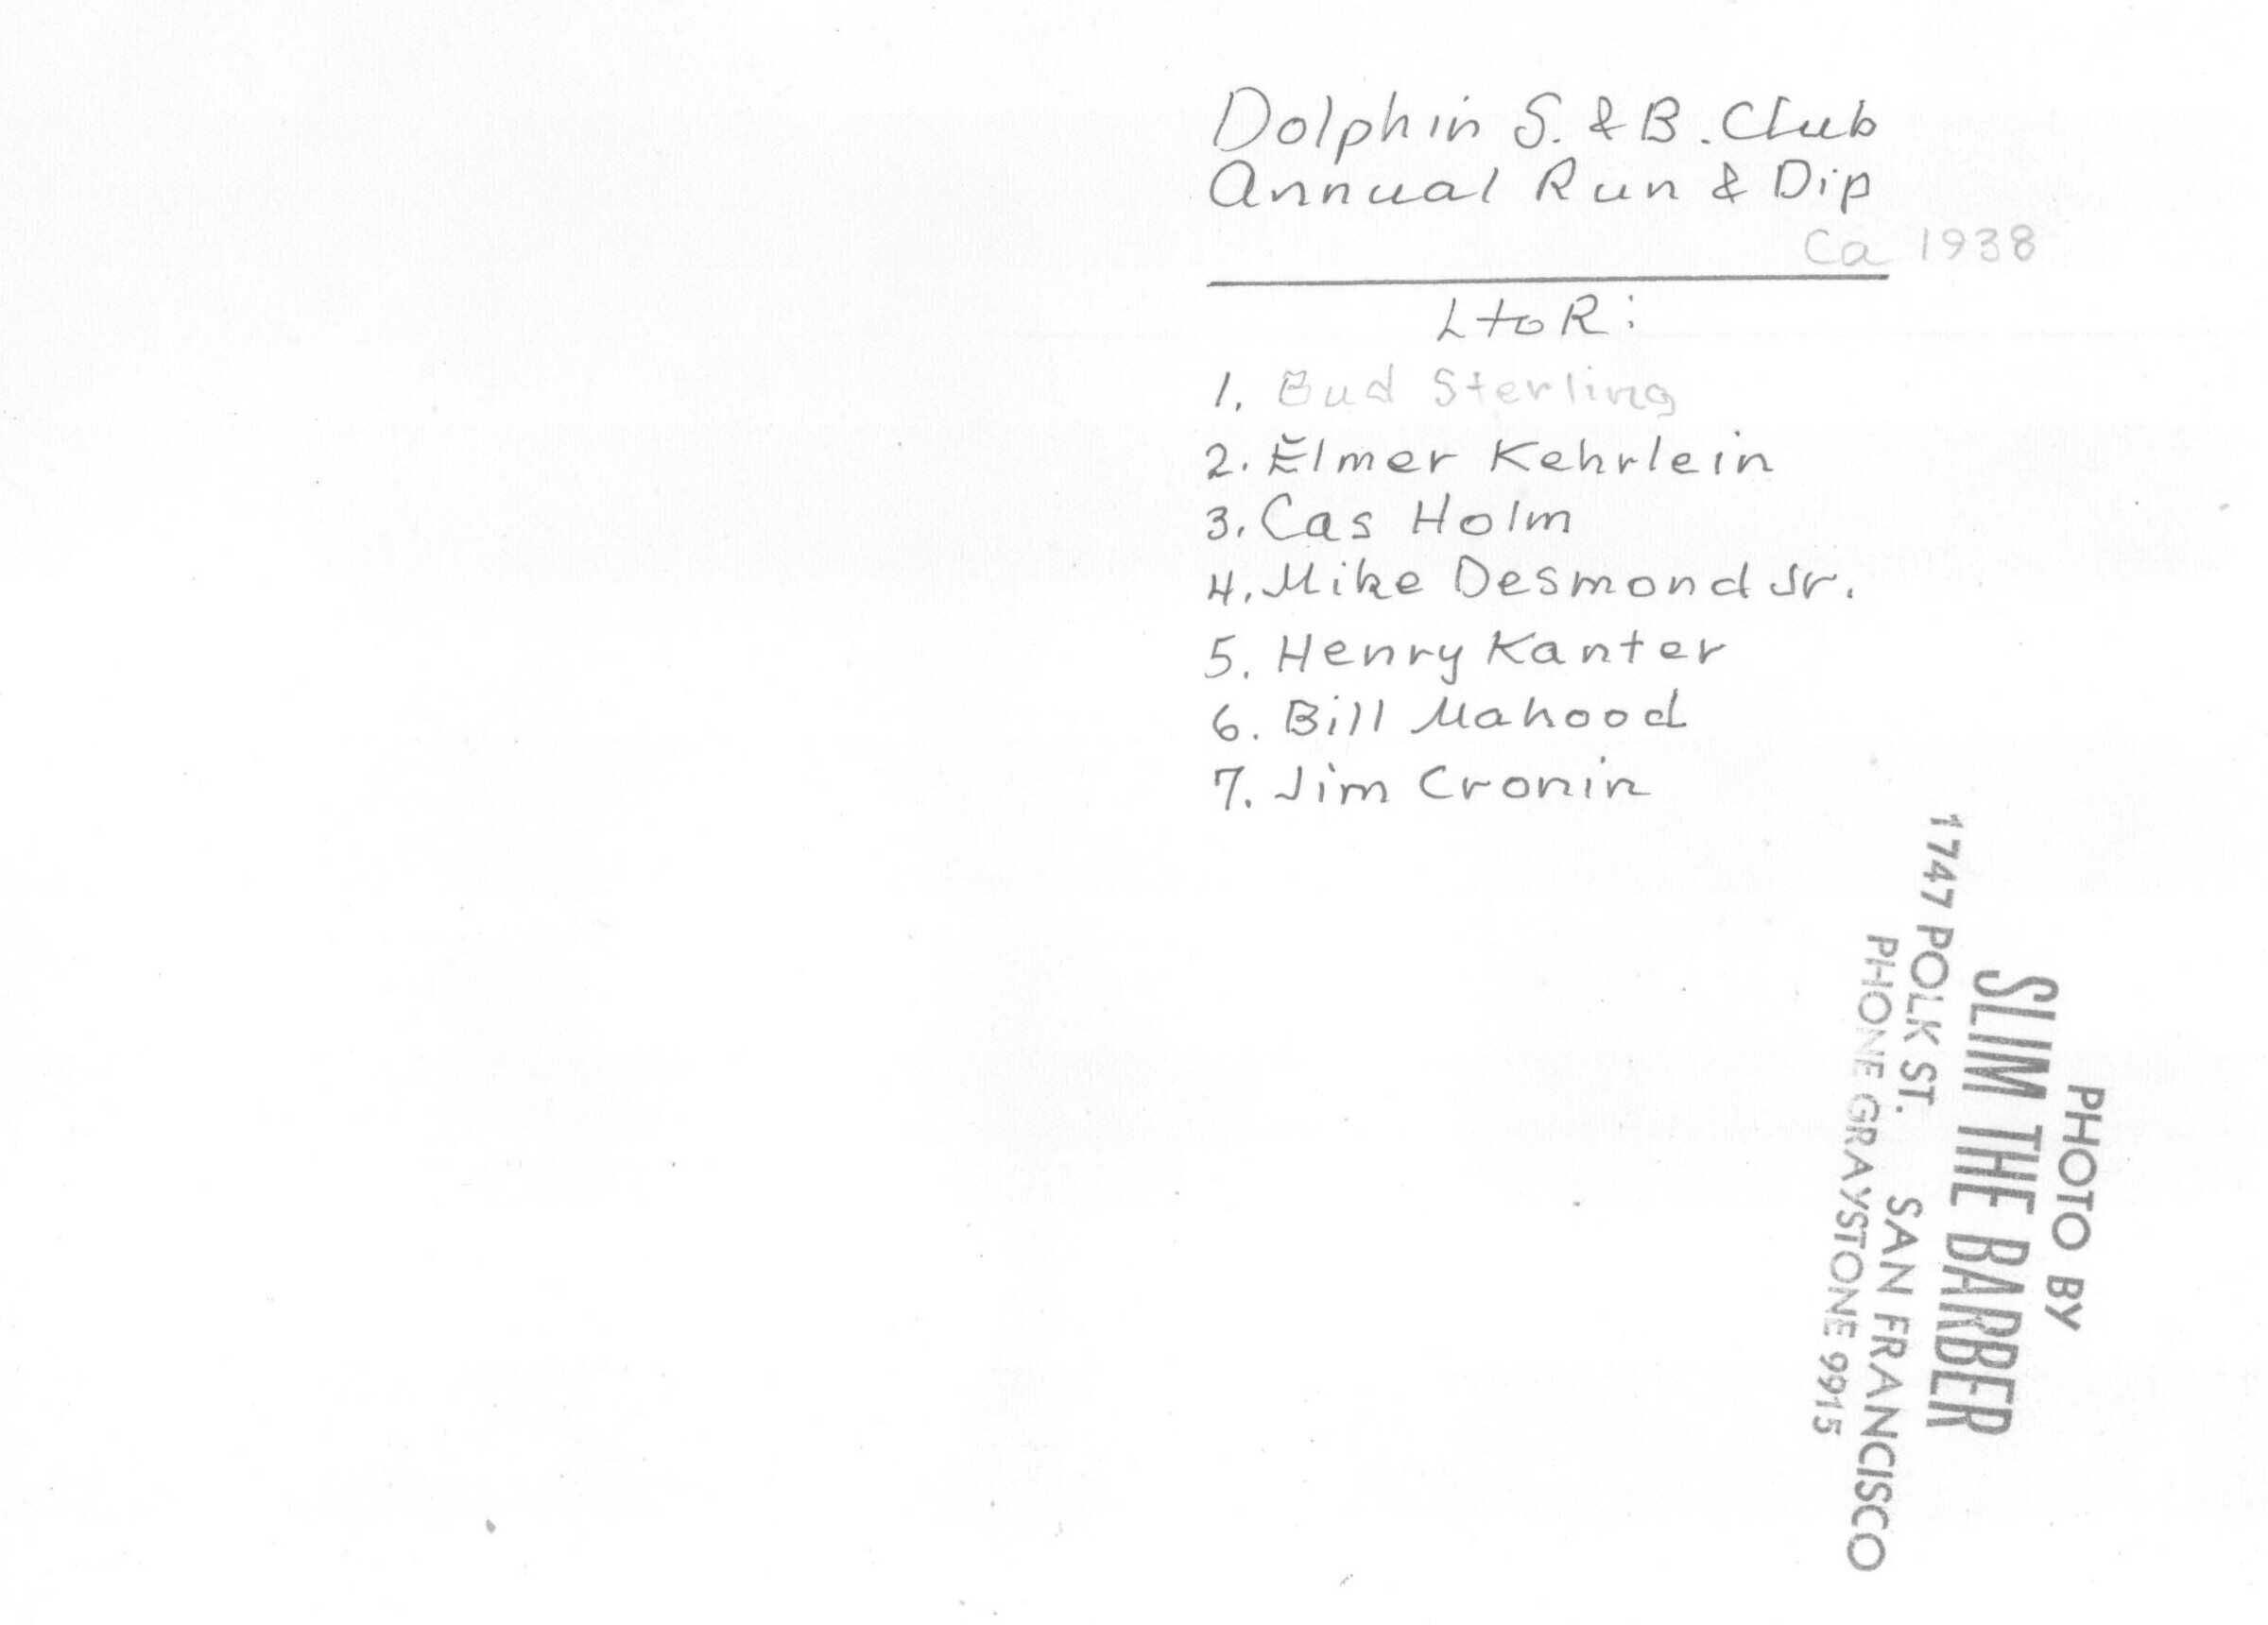 Dolphin S. & B. Club
Annual Run & Dip
Ca 1938
L to R:
1. Bud Sterling
2. Elmer Kehrlein
3. Cas Holm
4. Mike Desmond Jr.
5. Henry Kanter
6. Bill Mahood
7. Jim Cronin
PHOTO BY
SLIM THE BARBER
1747 POLK ST. SAN FRANCISCO
PHONE GRAYSTONE 9915